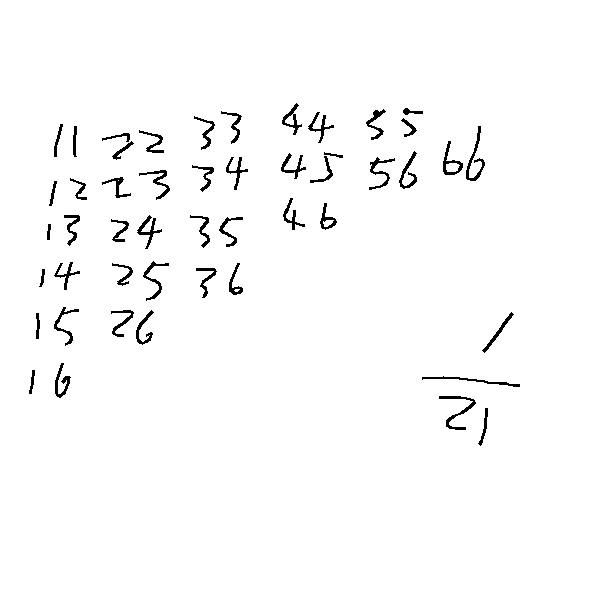 11 22 33 44 55
12 23 34 45 56 66
13 24 35 46
14 25 36
15 26
16
1
21